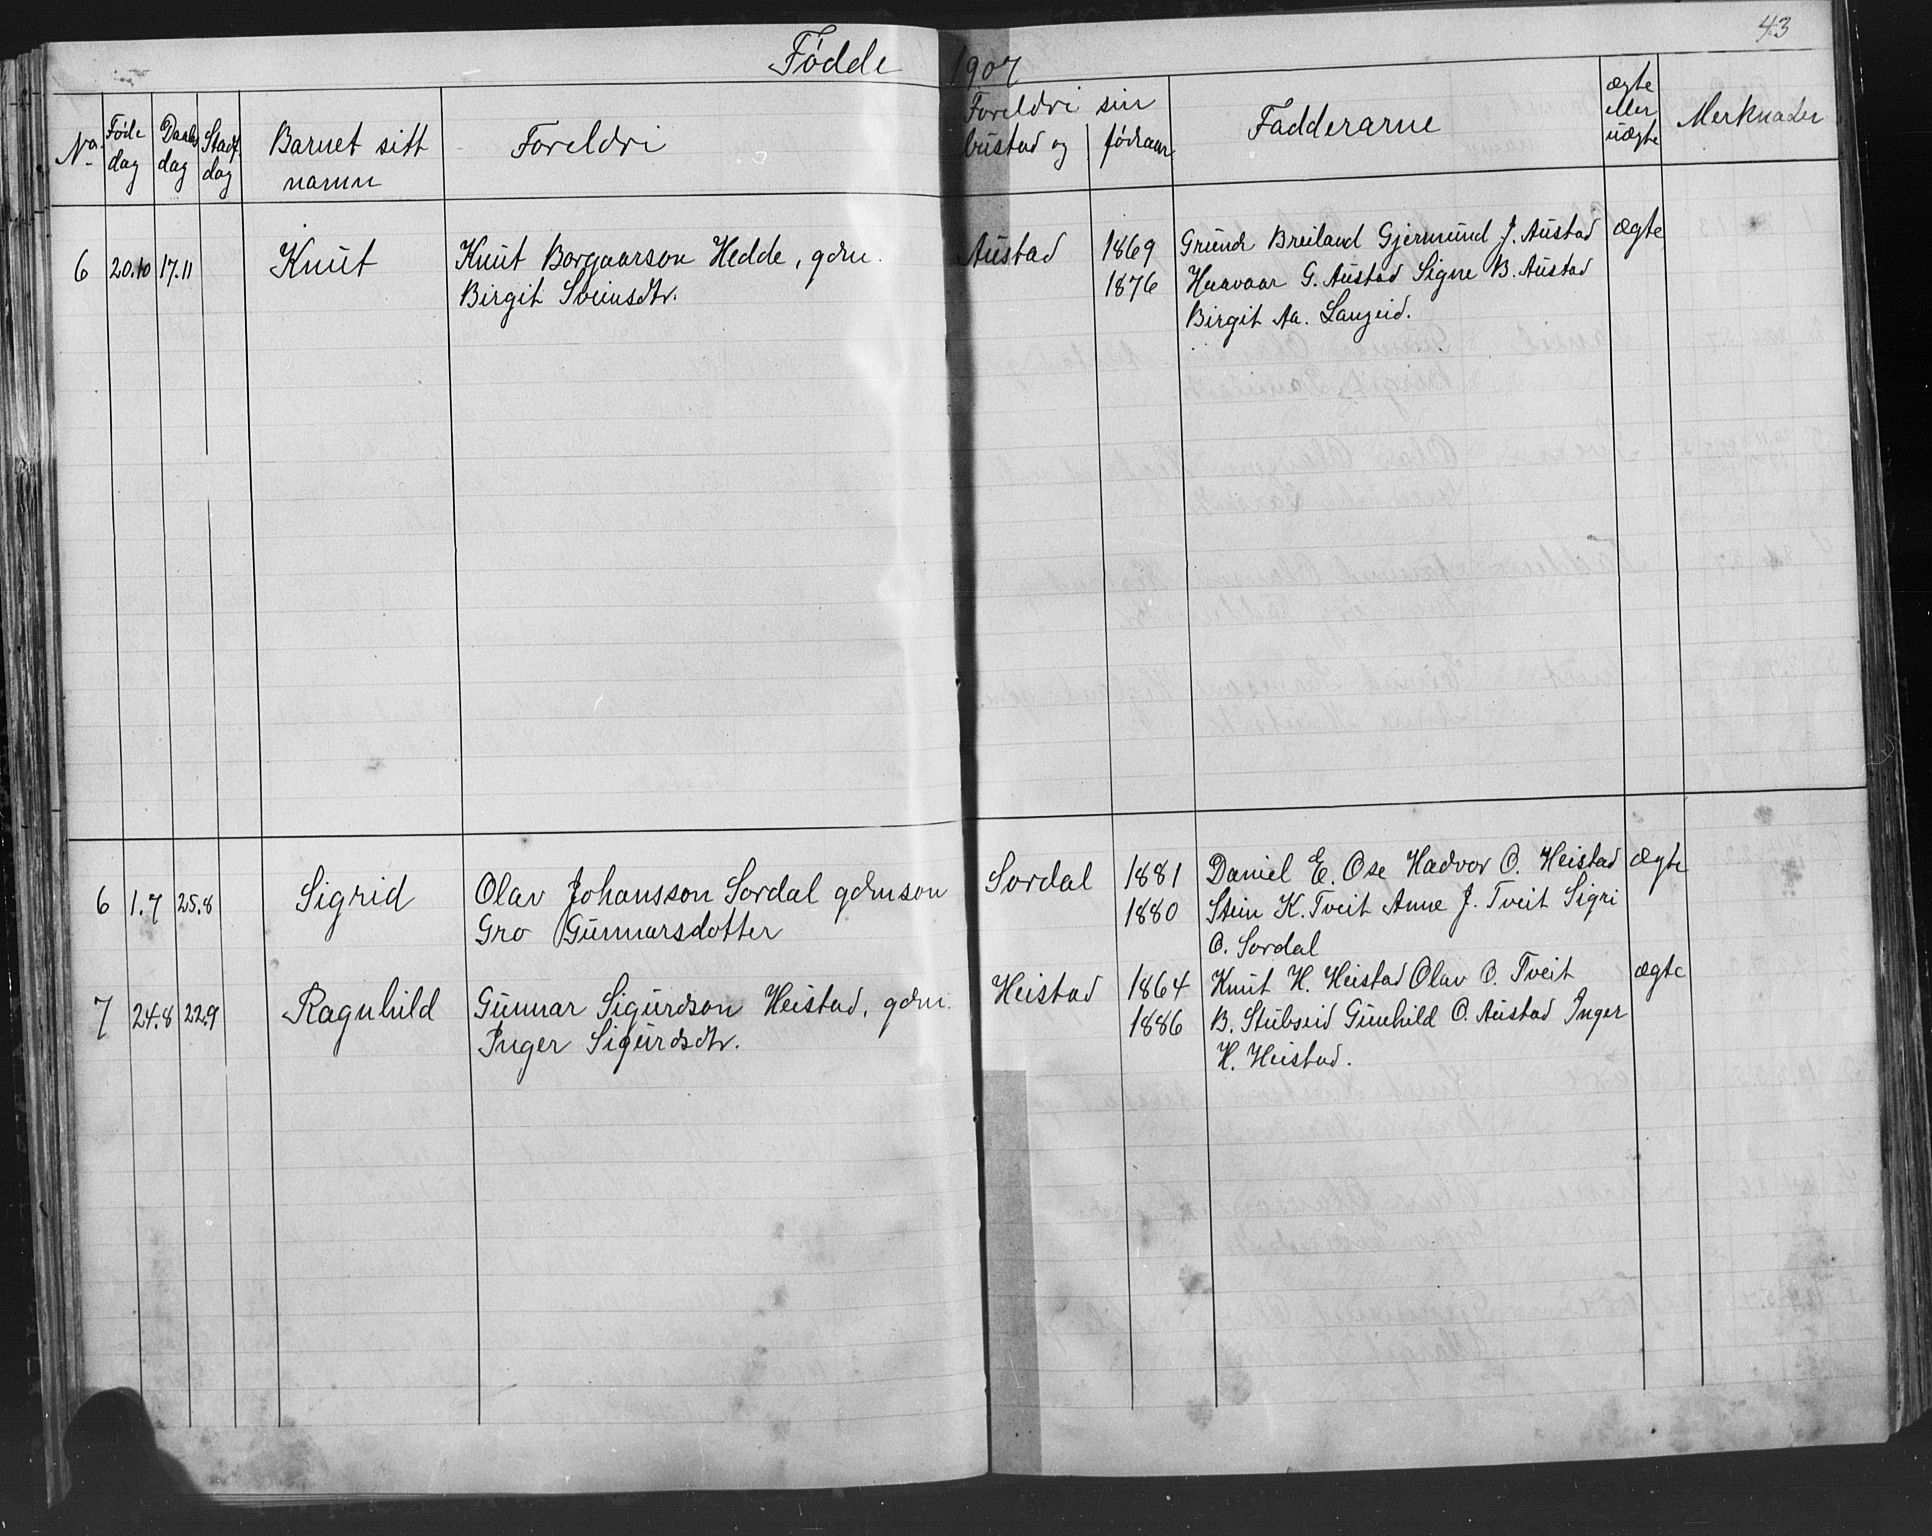 43
Fødde 1907
No. Føde dag Daabs dag Stadf. dag Barnet sitt namn Foreldri Foreldri sin bustad og fødeaar Fadderarne ægte eller uægte Merknader
6 20.10 17.11 Knut Knut Borgaarson Hedde, gdm. Austad 1869 Gunde Breiland Gjermund J. Austad ægte
Birgit Sveinsdtr. 1876 Haavaar G. Austad Signe B. Austad
Birgit Aa. Langeid.
6 1.7 25.8 Sigrid Olav Johansson Sordal gdmson Sordal 1881 Daniel E. Ose Hadvor O. Heistad ægte
Gro Gunnarsdotter 1880 Stein K. Tveit Anne J. Tveit Sigri
O. Sordal
7 24.8 22.9 Ragnhild Gunnar Sigurdson Heistad, gdm. Heistad 1864 Knut H. Heistad Olav O. Tveit ægte
Inger Sigurdsdtr. 1886 B. Stubseid Gunhild O. Austad Inger
H. Heistad.